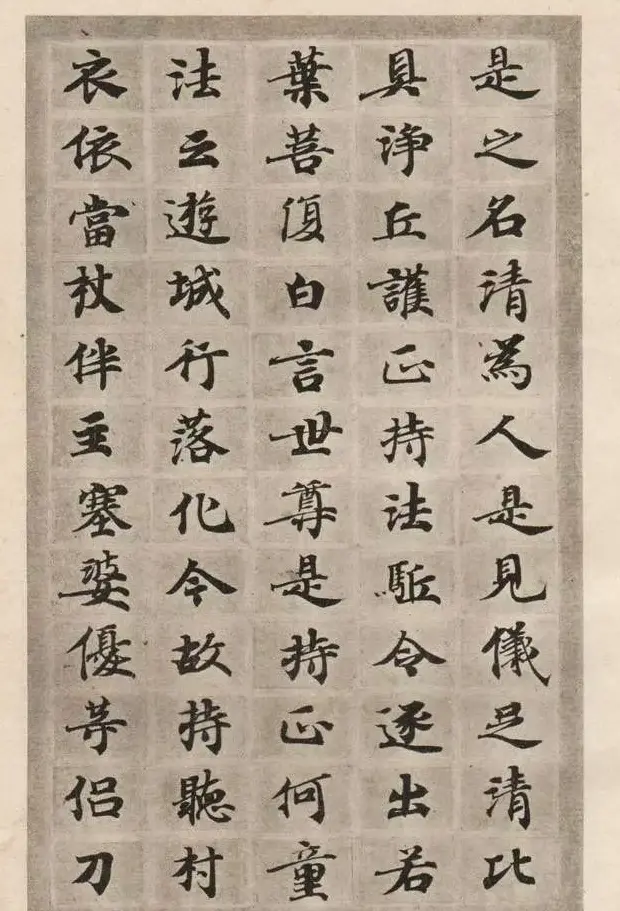 是之名清為人是見儀足清比
具淨丘護正持法駈令逐出若
葉菩復白言世尊是持正何童
法云遊城行落化今故持聽村
衣依當杖伴主塞婆優等侶刀